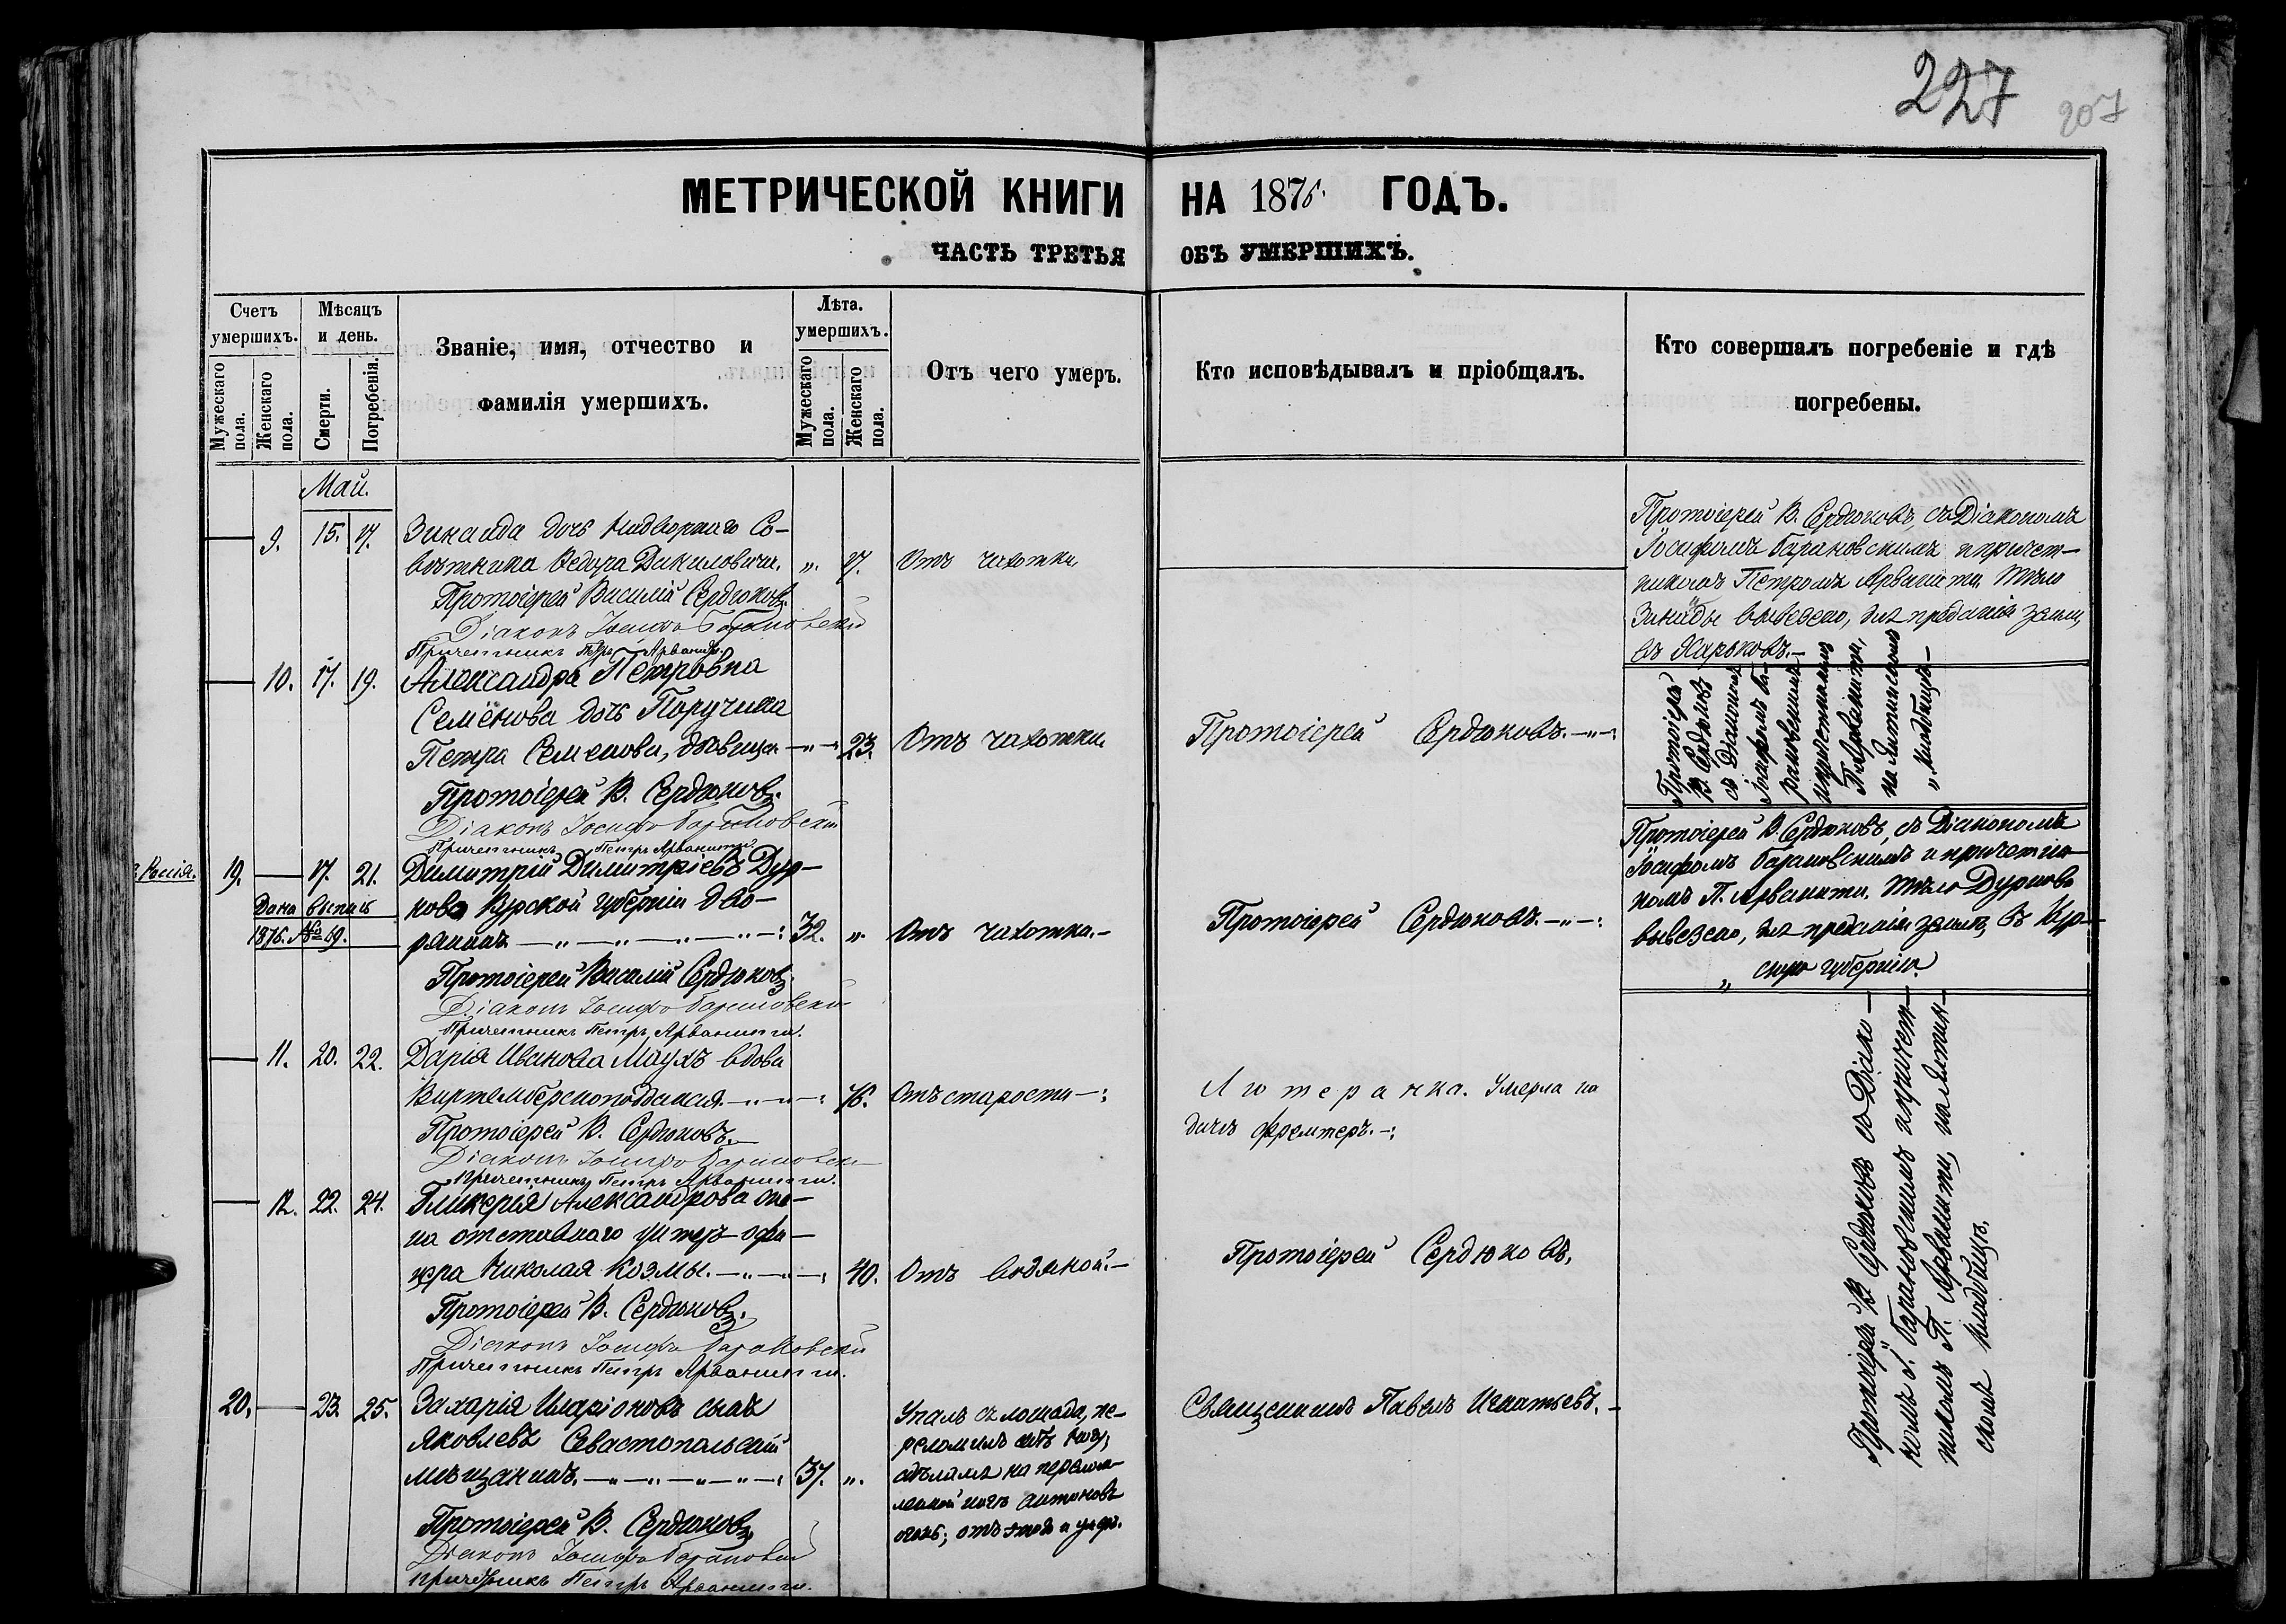 227
207
МЕТРИЧЕСКОЙ КНИГИ НА 1876 ГОДЪ.
ЧАСТЬ ТРЕТЬЯ ОБЪ УМЕРШИХЪ.
Счетъ умершихъ.
Мужескаго пола.
Женскаго пола.
Мѣсяцъ и день.
Смерти.
Погребенія.
Званіе, имя, отчество и
фамилія умершихъ.
Лѣта умершихъ.
Мужескаго пола.
Женскаго пола.
Отъ чего умеръ.
Кто исповѣдывалъ и пріобщалъ.
Кто совершалъ погребеніе и гдѣ
погребены.
Май.
9. 15. 17. Зинаида дочь Надворнаго Со-
вѣтника Ѳедора Даниловича. „ 17. Отъ чахотки.
Протоіерей Василій Сердюковъ.
Діаконъ Іосифъ Барановскій
Причетникъ Петръ Арванити.
Протоіерей В. Сердюковъ, съ Діакономъ
Іосифомъ Барановскимъ и причет-
никомъ Петромъ Арванити. Тѣло
Зинаиды вывезено, для преданія земли,
въ Харьковъ.—
10. 17. 19. Александра Петровна
Семёнова дочь Поручика
Петра Семенова, дѣвица —„— 23. Отъ чахотки.
Протоіерей В. Сердюковъ.
Діаконъ Іосифъ Барановскій
Причетникъ Петръ Арванити.
Протоіерей Сердюковъ.—„—
Протоіерей
В. Сердюковъ
съ Діакономъ
Іосифомъ Ба-
рановскимъ
и причетникомъ
П. Арванити,
на Ялтинскомъ
„ кладбищѣ—
19. 17. 21. Димитрій Димитріевъ Дур-
ново Курской губерніи дво-
рянинъ —„—„—„—„— 32. „ Отъ чахотки.—
Дана выпись
1876. № 69.
Протоіерей Василій Сердюковъ.
Діаконъ Іосифъ Барановскій
Причетникъ Петръ Арванити.
Протоіерей Сердюковъ.—„—
Протоіерей В. Сердюковъ, съ Діакономъ
Іосифомъ Барановскимъ и причетни-
комъ П. Арванити. Тѣло Дурново
вывезено, для преданія землѣ, въ Кур-
„ скую губернію.
11. 20. 22. Дарія Иванова Маухъ вдова
Виртембергскоподданая.—„—„— 76. Отъ старости—
Протоіерей В. Сердюковъ.
Діаконъ Іосифъ Барановскій
Причетникъ Петръ Арванити.
Лютеранка. Умерла на
дачѣ
12. 22. 24. Гликерія Александрова же-
на отставнаго унтеръ-офи-
цера Николая Козмы.—„—„— 40. Отъ водяной.—
Протоіерей В. Сердюковъ.
Діаконъ Іосифъ Барановскій
Причетникъ Петръ Арванити.
Протоіерей Сердюковъ.
20. 23. 25. Захарія Иларіоновъ сынъ
Яковлевъ Севастопольскій
мѣщанинъ.—„—„—„—„— 37. „
Упалъ съ лошади, пе-
реломилъ себѣ ногу,
сдѣлался на перелом-
ленной ногѣ антоновъ
огонь; отъ этого и умеръ.
Протоіерей В. Сердюковъ
Діаконъ Іосифъ Барановскій
Причетникъ Петръ Арванити.
Священникъ Павелъ Игнатьевъ.—
Протоіерей В. Сердюковъ съ Діако-
номъ І. Барановскимъ и причет-
никомъ П. Арванити, на Ялтин-
скомъ кладбищѣ.